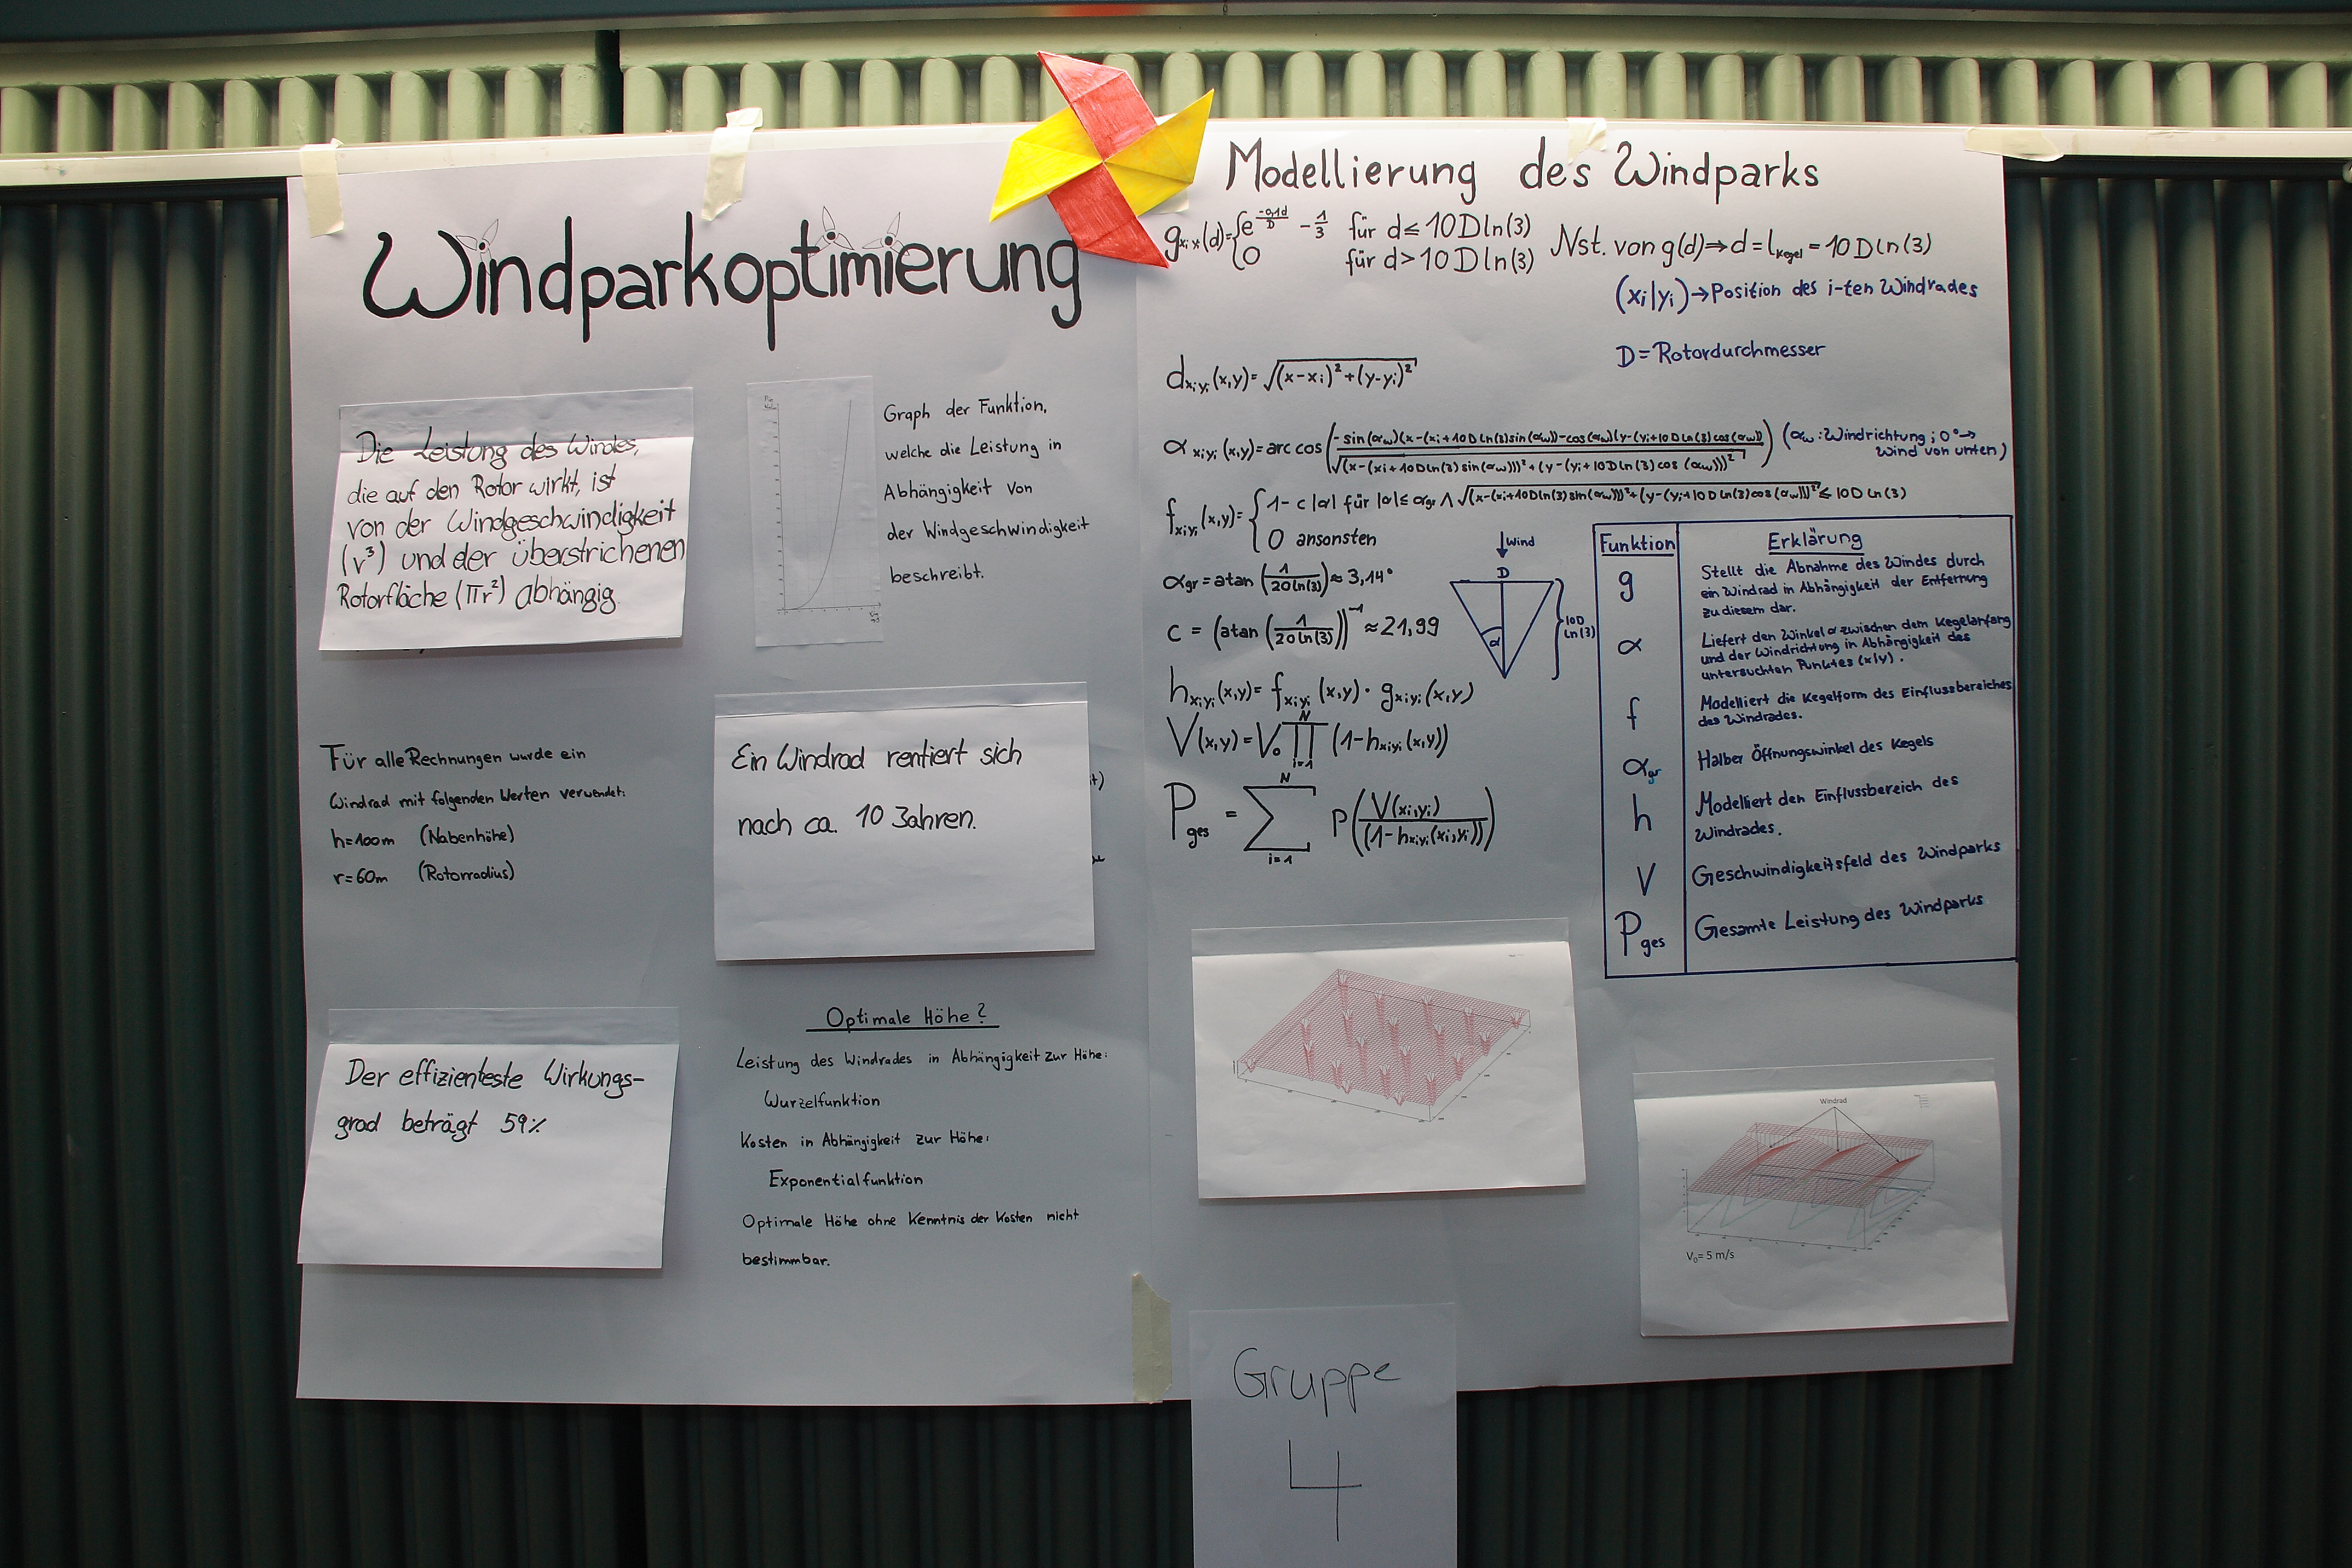 Windparkoptimierung
Die Leistung des Windes,
die auf den Rotor wirkt, ist
von der Windgeschwindigkeit
(v³) und der überstrichenen
Rotorfläche (πr²) abhängig.
Graph der Funktion,
welche die Leistung in
Abhängigkeit von
der Windgeschwindigkeit
beschreibt.
Für alle Rechnungen wurde ein
Windrad mit folgenden Werten verwendet:
h=100m (Nabenhöhe)
r=60m (Rotorradius)
Ein Windrad rentiert sich
nach ca. 10 Jahren.
Der effizienteste Wirkungs-
grad beträgt 59%
Optimale Höhe?
Leistung des Windrades in Abhängigkeit zur Höhe:
Wurzelfunktion
Kosten in Abhängigkeit zur Höhe:
Exponentialfunktion
Optimale Höhe ohne Kenntnis der Kosten nicht
bestimmbar.
Modellierung des Windparks
g_xiyi(d)={e^(-0,1d/D) - 1/3 für d≤10Dln(3)
0 für d>10Dln(3)
Nst. von g(d)⇒d=l_Kegel=10Dln(3)
(xi|yi)→Position des i-ten Windrades
D=Rotordurchmesser
d_xiyi(x,y)=√((x-xi)²+(y-yi)²)
α_xiyi(x,y)=arccos((-sin(αw)(x-(xi+10Dln(3)sin(αw))-cos(αw)(y-(yi+10Dln(3)cos(αw)))/√((x-(xi+10Dln(3)sin(αw)))²+(y-(yi+10Dln(3)cos(αw)))²)) (αw: Windrichtung; 0°→
Wind von unten)
f_xiyi(x,y)={1-c|α| für |α|≤αgr ∧ √((x-(xi+10Dln(3)sin(αw)))²+(y-(yi+10Dln(3)cos(αw)))²)≤10Dln(3)
0 ansonsten
αgr=atan(1/(20ln(3)))≈3,14°
c=(atan(1/(20ln(3))))⁻¹≈21,99
Wind
D
α
10D
ln(3)
h_xiyi(x,y)=f_xiyi(x,y)·g_xiyi(x,y)
V(x,y)=V₀ ∏_(i=1)^N (1-h_xiyi(x,y))
P_ges=∑_(i=1)^N P(V(xi,yi)/(1-h_xiyi(xi,yi)))
Funktion Erklärung
g Stellt die Abnahme des Windes durch
ein Windrad in Abhängigkeit der Entfernung
zu diesem dar.
α Liefert den Winkel α zwischen dem Kegelanfang
und der Windrichtung in Abhängigkeit des
untersuchten Punktes (x|y).
f Modelliert die Kegelform des Einflussbereiches
des Windrades.
αgr Halber Öffnungswinkel des Kegels
h Modelliert den Einflussbereich des
Windrades.
V Geschwindigkeitsfeld des Windparks
Pges Gesamte Leistung des Windparks
Windrad
V₀= 5 m/s
Gruppe
4